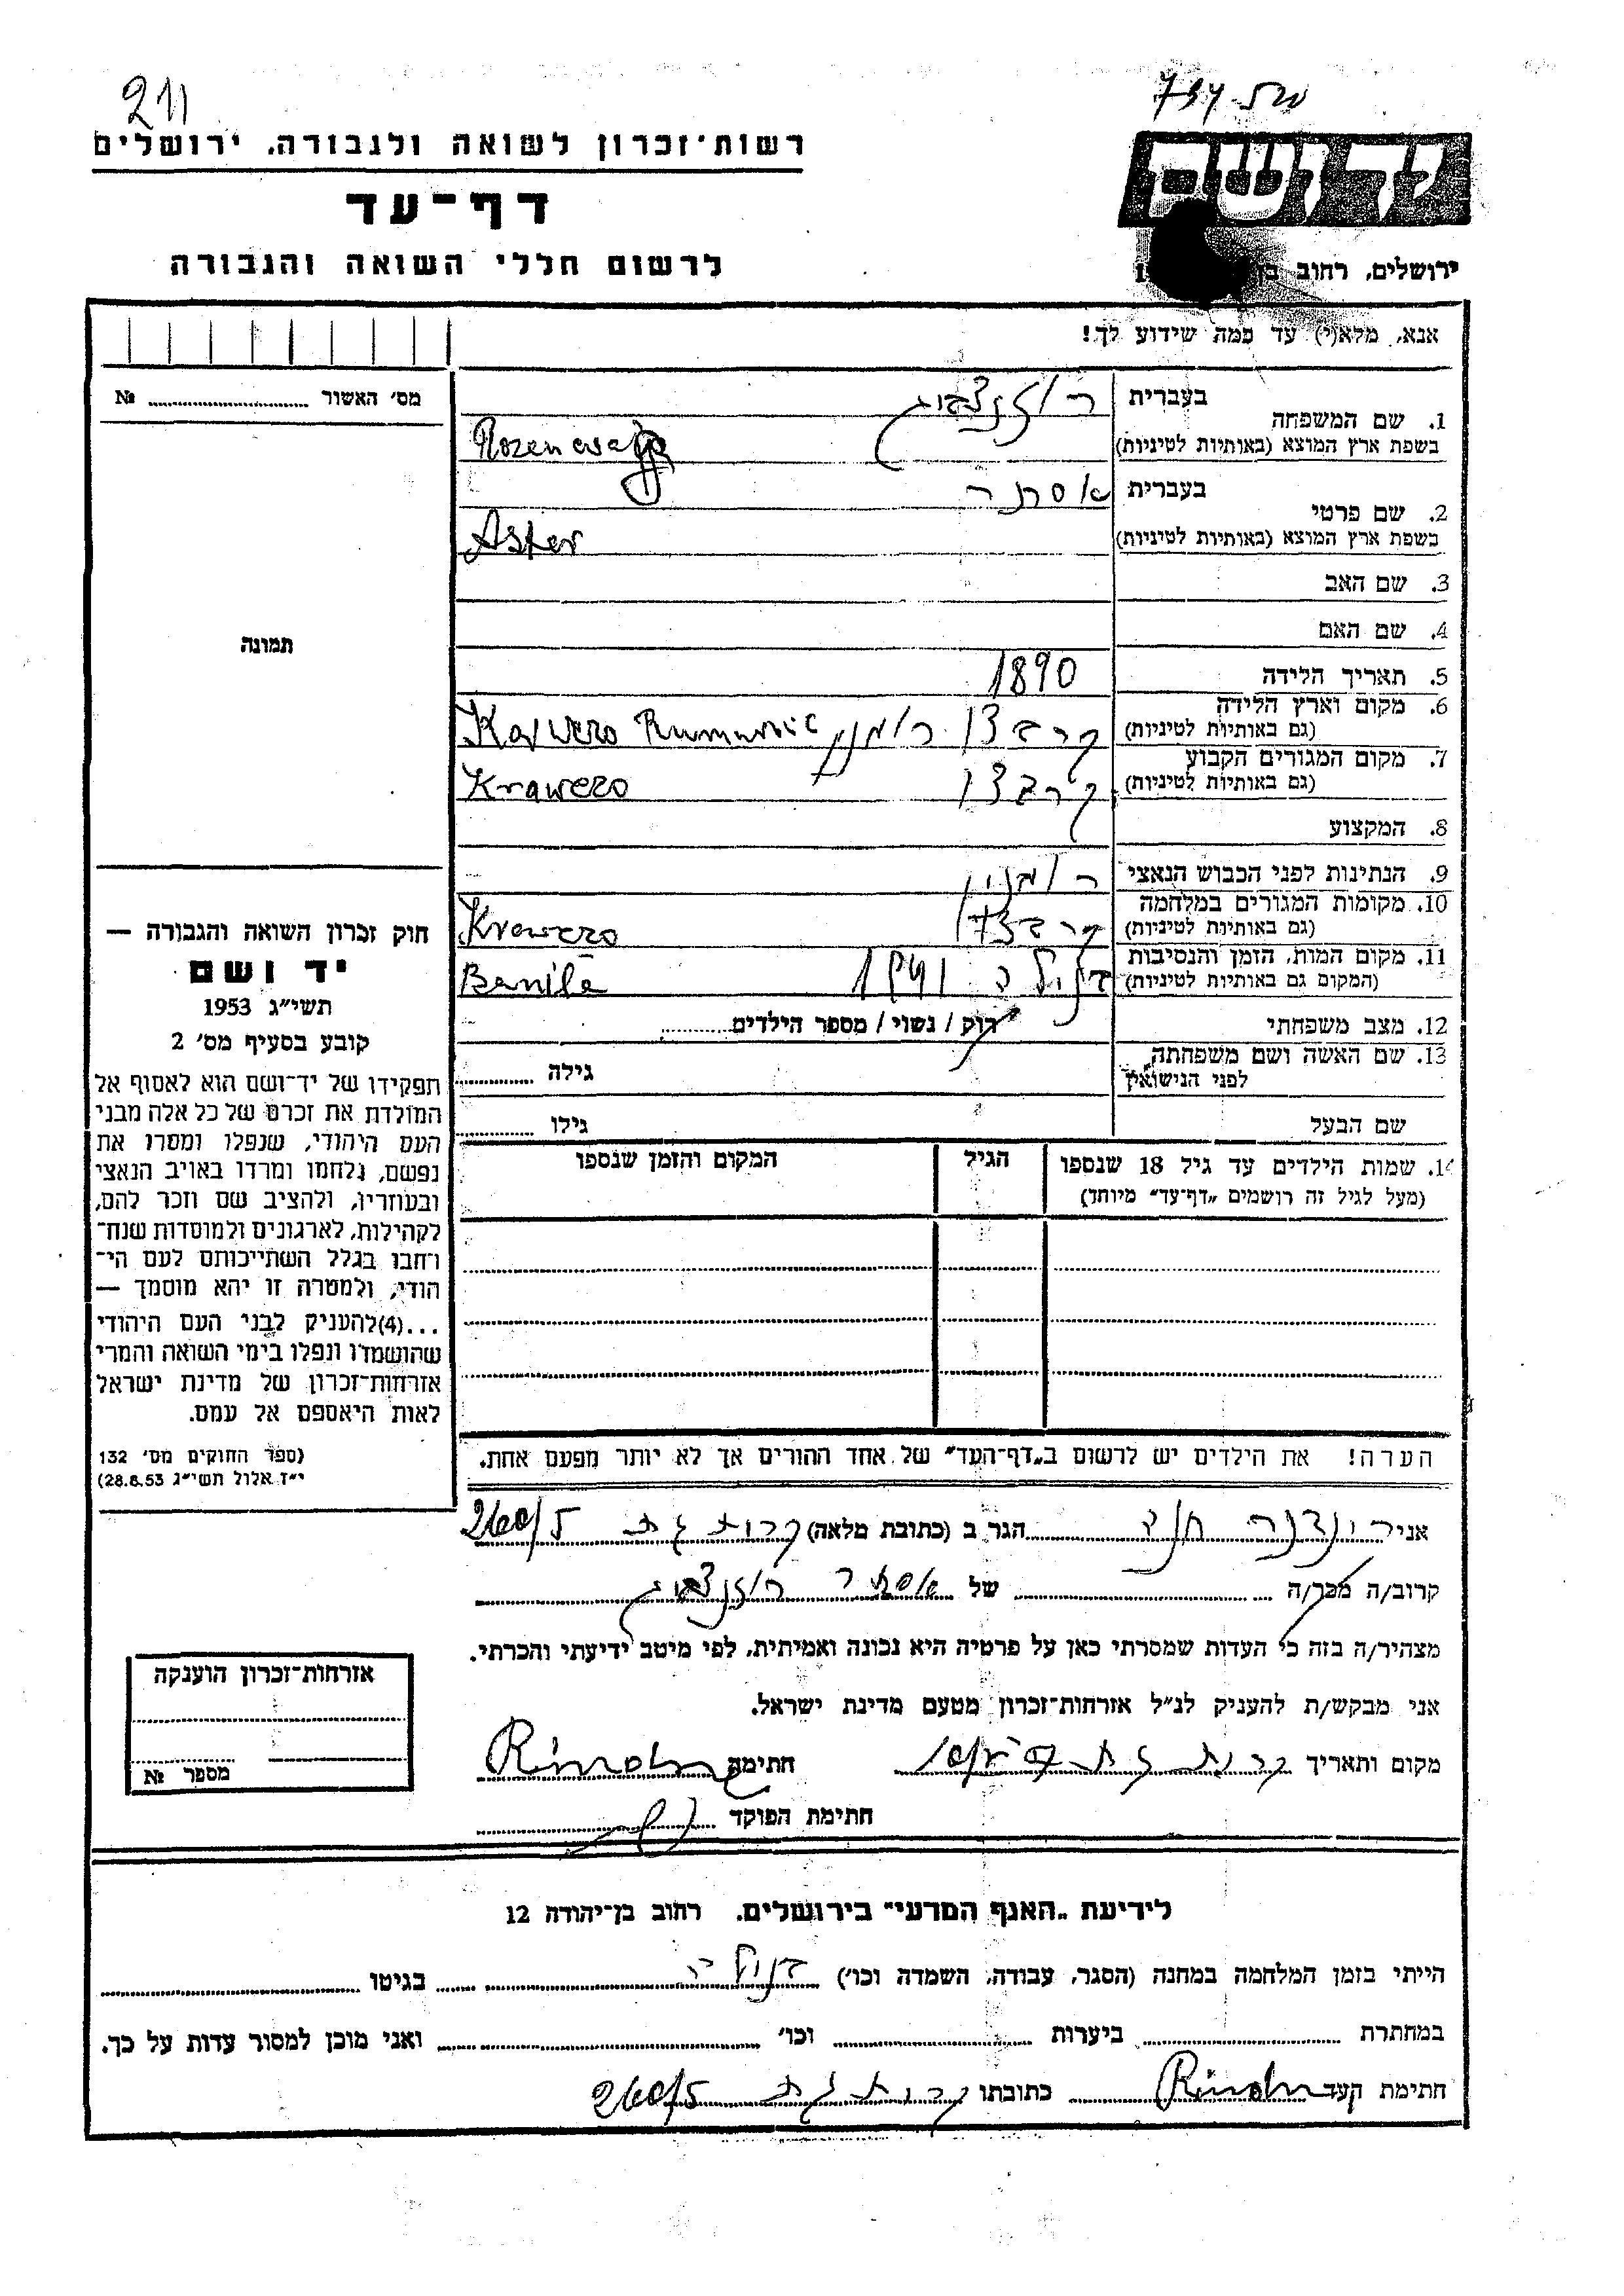 211
רשות־זכרון לשואה ולגבורה, ירושלים
דף־עד
לרשום חללי השואה והגבורה
ירושלים, רחוב
אנא, מלא(י) עד כמה שידוע לך!
מס׳ האשור №
תמונה
1. שם המשפחה
בעברית רוזנצויג
בשפת ארץ המוצא (באותיות לטיניות)
2. שם פרטי
בעברית אסתר
בשפת ארץ המוצא (באותיות לטיניות) Aster
3. שם האב
4. שם האם
5. תאריך הלידה 1890
6. מקום וארץ הלידה
(גם באותיות לטיניות)
7. מקום המגורים הקבוע
(גם באותיות לטיניות) Krawezo
8. המקצוע
9. הנתינות לפני הכבוש הנאצי
10. מקומות המגורים במלחמה
(גם באותיות לטיניות)
11. מקום המות, הזמן והנסיבות 1941
(המקום גם באותיות לטיניות) Banila
12. מצב משפחתי רוק / נשוי / מספר הילדים
13. שם האשה ושם משפחתה גילה
לפני הנישואין
שם הבעל גילו
14. שמות הילדים עד גיל 18 שנספו הגיל המקום והזמן שנספו
(מעל לגיל זה רושמים „דף־עד״ מיוחד)
הערה! את הילדים יש לרשום ב„דף־העד״ של אחד ההורים אך לא יותר מפעם אחת.
חוק זכרון השואה והגבורה —
יד ושם
תשי״ג 1953
קובע בסעיף מס׳ 2
תפקידו של יד־ושם הוא לאסוף אל
המולדת את זכרם של כל אלה מבני
העם היהודי, שנפלו ומסרו את
נפשם, נלחמו ומרדו באויב הנאצי
ובעוזריו, ולהציב שם וזכר להם,
לקהילות, לארגונים ולמוסדות שנח־
רחבו בגלל השתייכותם לעם הי־
הודי, ולמטרה זו יהא מוסמך —
...(4)להעניק לבני העם היהודי
שהושמדו ונפלו בימי השואה והמרי
אזרחות־זכרון של מדינת ישראל
לאות היאספם אל עמם.
(ספר החוקים מס׳ 132
י״ז אלול תשי״ג 28.8.53)
אני הגר ב (כתובת מלאה) קרית גת 260/5
קרוב/ה מכר/ה של אסתר רוזנצויג
מצהיר/ה בזה כי העדות שמסרתי כאן על פרטיה היא נכונה ואמיתית, לפי מיטב ידיעתי והכרתי.
אני מבקש/ת להעניק לנ״ל אזרחות־זכרון מטעם מדינת ישראל.
מקום ותאריך קרית גת חתימה
חתימת הפוקד
אזרחות־זכרון הוענקה
מספר №
לידיעת „האגף המדעי״ בירושלים, רחוב בן־יהודה 12
הייתי בזמן המלחמה במחנה (הסגר, עבודה, השמדה וכו׳) בגיטו
במחתרת ביערות וכו׳ ואני מוכן למסור עדות על כך.
חתימת העד כתובתו קרית גת 260/5